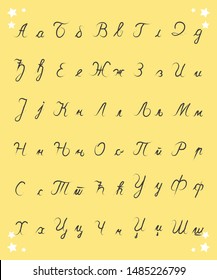 А а Б б В в Г г Д д
Ђ ђ Е е Ж ж З з И и
Ј ј К к Л л Љ љ М м
Н н Њ њ О о П п Р р
С с Т т Ћ ћ У у Ф ф
Х х Ц ц Ч ч Џ џ Ш ш
shutterstock.com · 1485226799